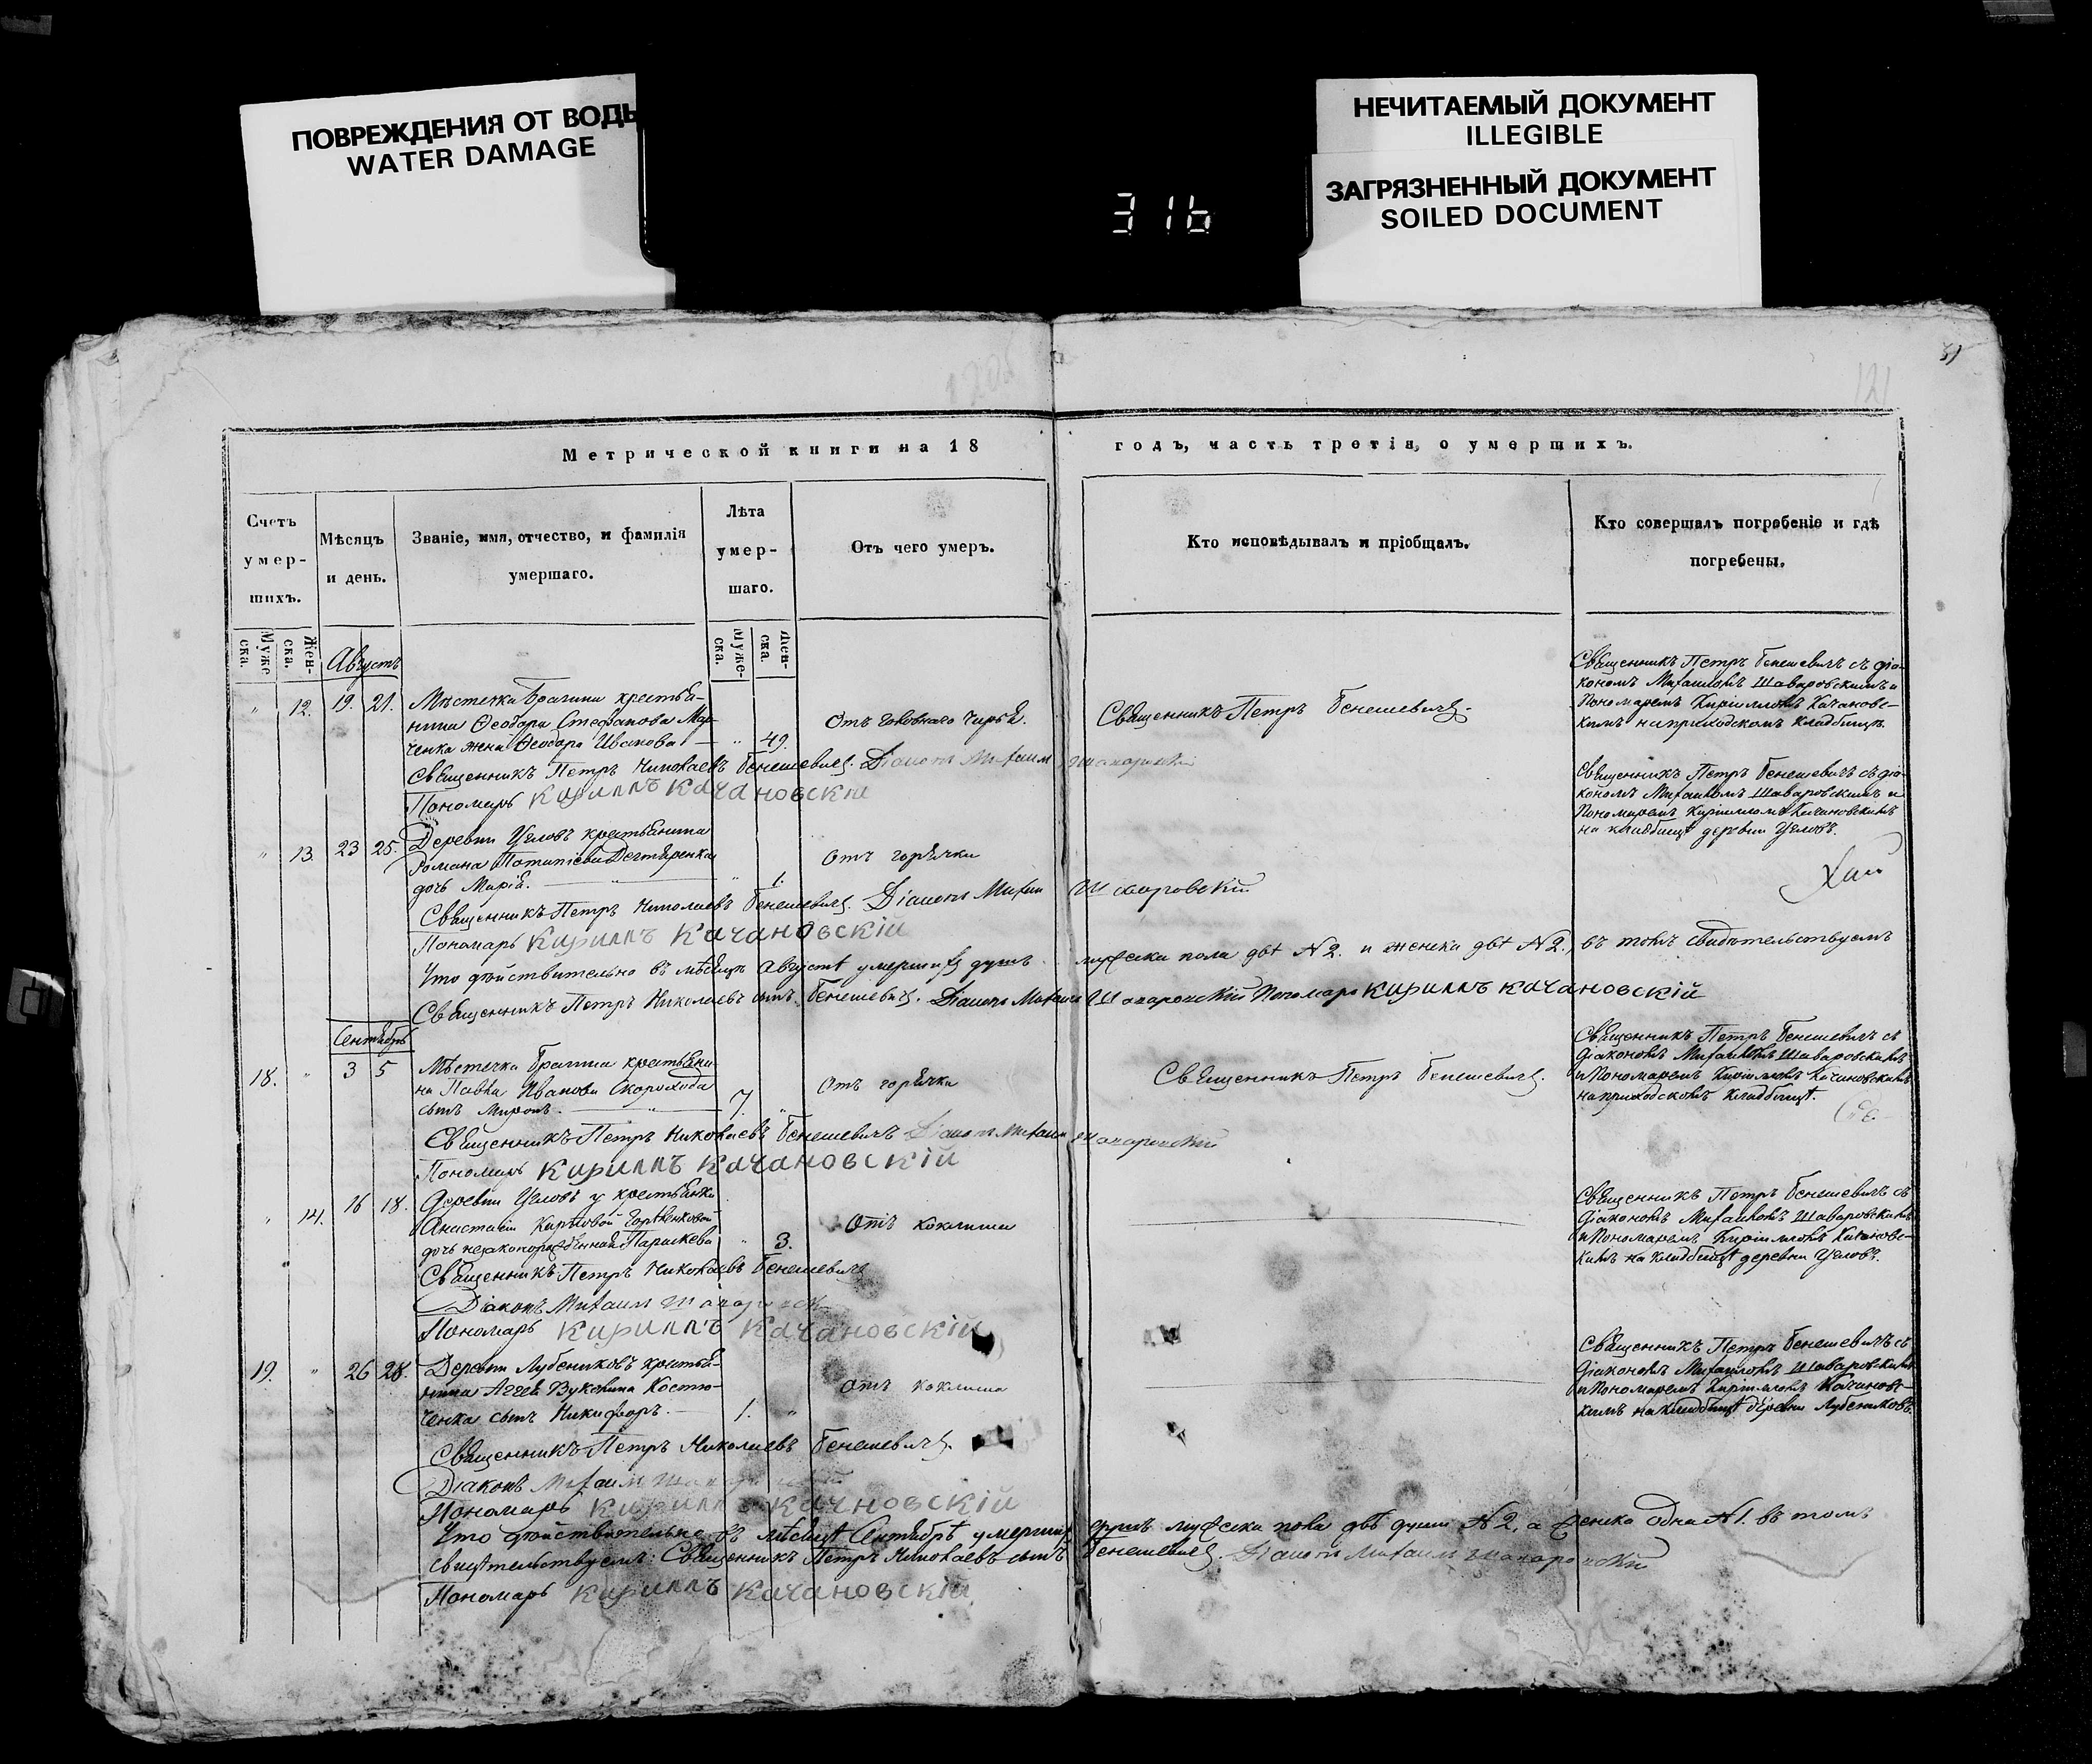 ПОВРЕЖДЕНИЯ ОТ ВОДЫ
WATER DAMAGE
НЕЧИТАЕМЫЙ ДОКУМЕНТ
ILLEGIBLE
ЗАГРЯЗНЕННЫЙ ДОКУМЕНТ
SOILED DOCUMENT
316
121
Метрической книги на 18 годъ, часть третія, о умершихъ.
Счетъ умер-
шихъ.
Мѣсяцъ
и день.
Званіе, имя, отчество, и фамилія
умершаго.
Лѣта
умер-
шаго.
Отъ чего умеръ.
Кто исповѣдывалъ и пріобщалъ.
Кто совершалъ погребеніе и гдѣ
погребены.
Муже
ска.
Жен-
ска.
Муже-
ска.
Жен-
ска.
Августъ
" 12. 19. 21. Мѣстечка Брагина крестья-
нина Ѳеодора Стефанова
ченка жена Ѳеодора Иванова — " 49.
Священникъ Петръ Бенешевичъ.
Священникъ Петръ Бенешевичъ съ діа-
кономъ Михаиломъ Шаваровскимъ и
Пономаремъ Кирилломъ Качановс-
кимъ на приходскомъ кладбищѣ.
Священникъ Петръ Николаевъ Бенешевичъ. Діаконъ Михаилъ
Пономарь Кириллъ Качановскій
" 13. 23 25. Деревни Угловъ крестьянина
Романа Дегтяренка
дочь Марія. " 1.
Отъ горячки
Священникъ Петръ Бенешевичъ съ діа-
кономъ Михаиломъ Шаваровскимъ и
Пономаремъ Кирилломъ Качановскимъ
на кладбищѣ деревни Угловъ.
Священникъ Петръ Николаевъ Бенешевичъ. Діаконъ Михаилъ Шаваровскій
Пономарь Кириллъ Качановскій
Что дѣйствительно въ мѣсяцѣ Августѣ умершихъ душъ мужеска пола двѣ №2. и женска двѣ №2., въ томъ свидѣтельствуемъ
Священникъ Петръ Николаевъ сынъ Бенешевичъ. Діаконъ Михаилъ Шаваровскій Пономарь Кириллъ Качановскій
Сентябрь
18. " 3 5 Мѣстечка Брагина крестьяни-
на Павла Иванова Скорохода
сынъ Миронъ. 7. "
Отъ горячки
Священникъ Петръ Бенешевичъ.
Священникъ Петръ Бенешевичъ съ
діакономъ Михаиломъ Шаваровскимъ
и Пономаремъ Кирилломъ Качановскимъ
на приходскомъ кладбищѣ.
Священникъ Петръ Николаевъ Бенешевичъ Діаконъ Михаилъ
Пономарь Кириллъ Качановскій
" 14. 16 18. Деревни Угловъ у крестьянки
Анастасіи
дочь незаконорожденная Параскева " 3.
Отъ коклюша
Священникъ Петръ Бенешевичъ съ
діакономъ Михаиломъ Шаваровскимъ
и Пономаремъ Кирилломъ Качановс-
кимъ на кладбищѣ деревни Угловъ.
Священникъ Петръ Николаевъ Бенешевичъ
Діаконъ Михаилъ
Пономарь Кириллъ Качановскій
19. " 26 28. Деревни Лубениковъ крестья-
нина Аггея Костю-
ченка сынъ Никифоръ. — 1. "
Отъ коклюша
Священникъ Петръ Бенешевичъ съ
діакономъ Михаиломъ Шаваровскимъ
и Пономаремъ Кирилломъ Качановс-
кимъ на кладбищѣ деревни Лубениковъ.
Священникъ Петръ Николаевъ Бенешевичъ.
Діаконъ Михаилъ
Пономарь Кириллъ Качновскій
Что дѣйствительно въ мѣсяцѣ Сентябрѣ умершихъ душъ мужеска пола двѣ души №2, а женска одна №1. въ томъ
свидѣтельствуемъ: Священникъ Петръ Николаевъ сынъ Бенешевичъ. Діаконъ Михаилъ
Пономарь Кириллъ Качановскій